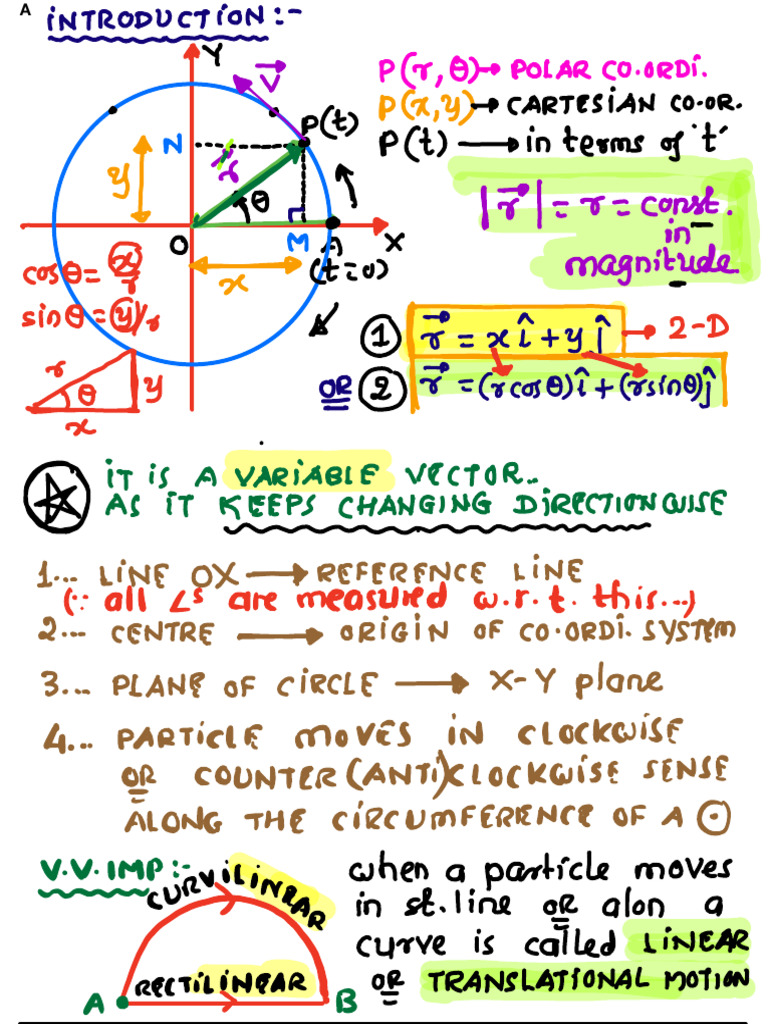 A
INTRODUCTION:-
Y
V
P(t)
N
r
y
θ
O
M
A
X
x
(t=0)
cosθ = x/r
sinθ = y/r
r
θ
y
x
P(r, θ)→ POLAR CO.ORDI.
P(x,y)→ CARTESIAN CO.OR.
P(t) → in terms of 't'
|r⃗| = r = const.
in
magnitude
① r⃗ = x î + y ĵ → 2-D
OR ② r⃗ = (rcosθ)î + (rsinθ)ĵ
IT IS A VARIABLE VECTOR..
AS IT KEEPS CHANGING DIRECTIONWISE
1... LINE OX → REFERENCE LINE
(∵ all ∠s are measured w.r.t. this...)
2... CENTRE → ORIGIN OF CO.ORDI. SYSTEM
3... PLANE OF CIRCLE → X-Y plane
4... PARTICLE MOVES IN CLOCKWISE
OR COUNTER(ANTI)CLOCKWISE SENSE
ALONG THE CIRCUMFERENCE OF A ⊙
V.V.IMP:-
CURVILINEAR
RECTILINEAR
A
B
when a particle moves
in st.line OR alon a
curve is called LINEAR
OR TRANSLATIONAL MOTION